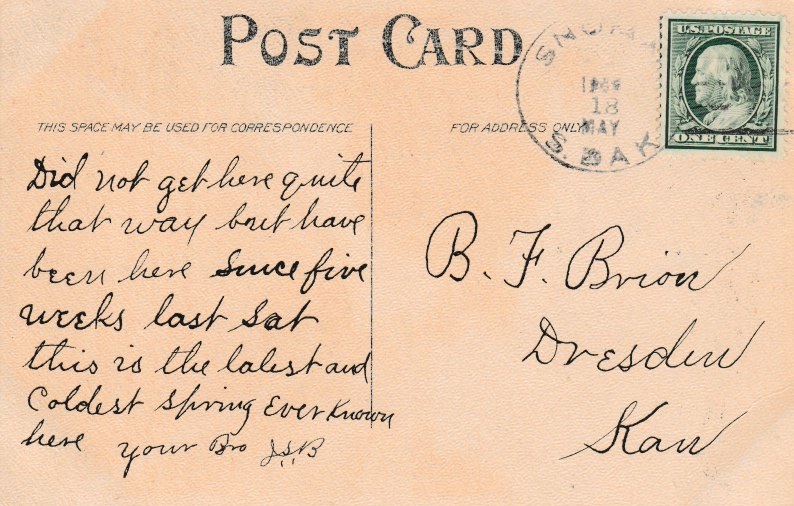 POST CARD
THIS SPACE MAY BE USED FOR CORRESPONDENCE
FOR ADDRESS ONLY
U.S. POSTAGE
ONE CENT
18
MAY
S. DAK
Did not get here quite
that way but have
been here since five
weeks last Sat
this is the latest and
Coldest spring Ever Known
here your Bro J.S.B
B. F. Brion
Dresden
Kan